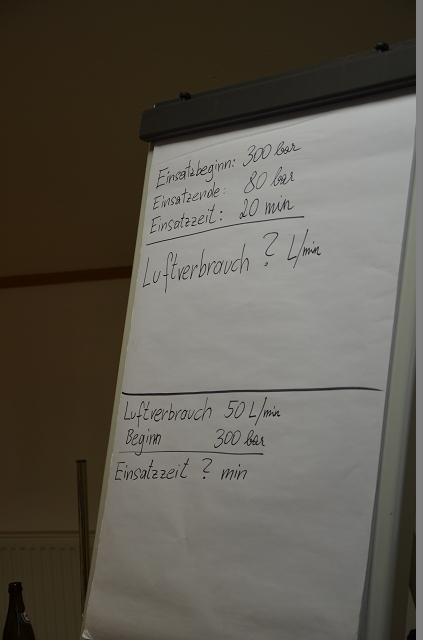 Einsatzbeginn: 300 bar
Einsatzende: 80 bar
Einsatzzeit: 20 min
Luftverbrauch ? L/min
Luftverbrauch 50 L/min
Beginn 300 bar
Einsatzzeit ? min